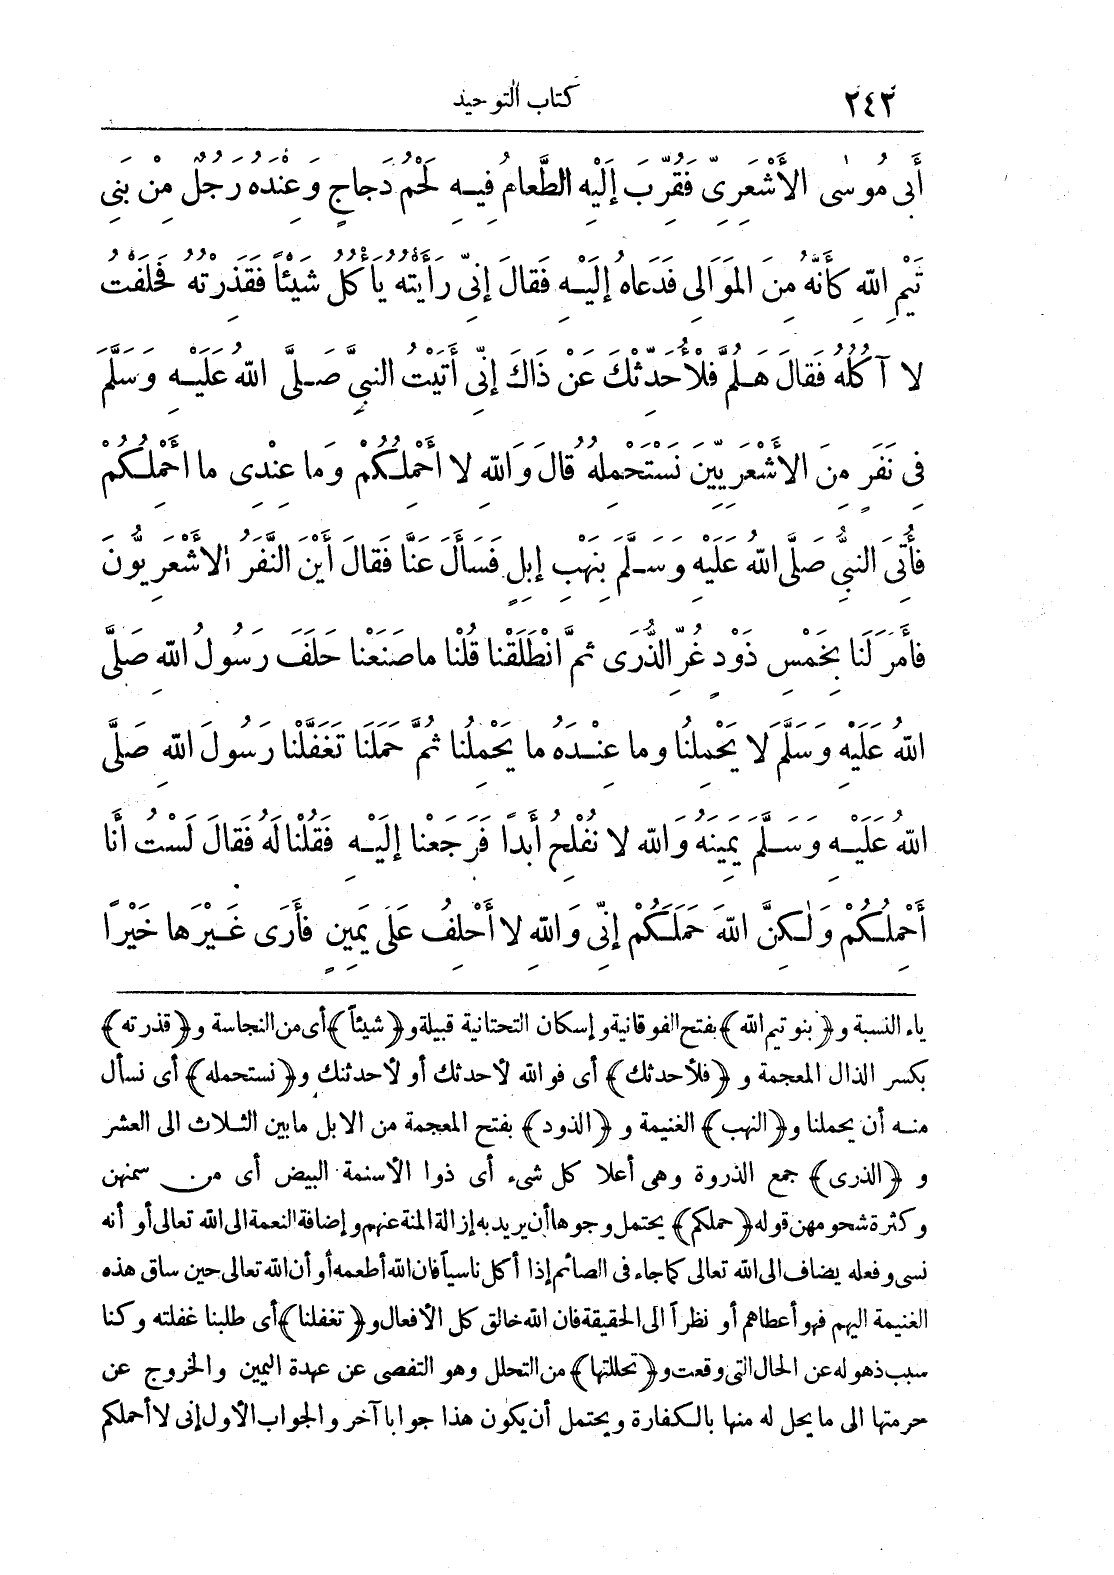 ٢٤٢ كتاب التوحيد
أَبِى مُوسٰى الأَشْعَرِىِّ فَقُرِّبَ إِلَيْهِ الطَّعَامُ فِيهِ لَحْمُ دَجاجٍ وَعِنْدَهُ رَجُلٌ مِنْ بَنِى
تَيْمِ اللهِ كَأَنَّهُ مِنَ المَوَالِى فَدَعاهُ إِلَيْهِ فَقَالَ إِنِّى رَأَيْتُهُ يَأْكُلُ شَيْئاً فَقَذِرْتُهُ فَحَلَفْتُ
لا آكُلُهُ فَقَالَ هَلُمَّ فَلْأُحَدِّثْكَ عَنْ ذَاكَ إِنِّى أَتَيْتُ النبىَّ صَلَّى اللهُ عَلَيْهِ وَسَلَّمَ
فِى نَفَرٍ مِنَ الأَشْعَرِيِّينَ نَسْتَحْمِلُهُ قالَ وَاللهِ لا أَحْمِلُكُمْ وَما عِنْدِى ما أَحْمِلُكُمْ
فَأُتِىَ النبىُّ صَلَّى اللهُ عَلَيْهِ وَسَلَّمَ بِنَهْبِ إِبِلٍ فَسَأَلَ عَنَّا فَقالَ أَيْنَ النَّفَرُ الأَشْعَرِيُّونَ
فأَمَرَ لَنَا بِخَمْسِ ذَوْدٍ غُرِّ الذُّرَى ثمَّ انْطَلَقْنا قُلْنا ماصَنَعْنا حَلَفَ رَسُولُ اللهِ صَلَّى
اللهُ عَلَيْهِ وَسَلَّمَ لا يَحْمِلُنَا وما عِنْدَهُ ما يَحْمِلُنا ثُمَّ حَمَلَنَا تَغَفَّلْنا رَسُولَ اللهِ صَلَّى
اللهُ عَلَيْهِ وَسَلَّمَ يَمِينَهُ وَاللهِ لا نُفْلِحُ أَبَداً فَرَجَعْنا إِلَيْهِ فَقُلْنا لَهُ فَقَالَ لَسْتُ أَنا
أَحْمِلُكُمْ وَلٰكِنَّ اللهَ حَمَلَكُمْ إِنِّى وَاللهِ لا أَحْلِفُ عَلَى يَمِينٍ فأَرَى غَيْرَها خَيْراً
ياء النسبة و﴿بنو تيم الله﴾ بفتح الفوقانية وإسكان التحتانية قبيلة و﴿شيئاً﴾ أى من النجاسة و﴿قذرته﴾
بكسر الذال المعجمة و ﴿فلأحدثك﴾ أى فوالله لأحدثك أو لأحدثنك و﴿نستحمله﴾ أى نسأل
منه أن يحملنا و﴿النهب﴾ الغنيمة و ﴿الذود﴾ بفتح المعجمة من الابل مابين الثلاث الى العشر
و ﴿الذرى﴾ جمع الذروة وهى أعلا كل شىء أى ذوا الأسنمة البيض أى من سمنهن
وكثرة شحومهن قوله ﴿حملكم﴾ يحتمل وجوها أن يريد به إزالة المنة عنهم وإضافة النعمة الى الله تعالى أو أنه
نسى وفعله يضاف الى الله تعالى كما جاء فى الصائم إذا أكل ناسياً فان الله أطعمه أو أن الله تعالى حين ساق هذه
الغنيمة اليهم فهو أعطاهم أو نظراً الى الحقيقة فان الله خالق كل الأفعال و﴿تغفلنا﴾ أى طلبنا غفلته وكنا
سبب ذهوله عن الحال التى وقعت و﴿تحللتها﴾ من التحلل وهو التفصى عن عهدة اليمين والخروج عن
حرمتها الى ما يحل له منها بالكفارة ويحتمل أن يكون هذا جوابا آخر والجواب الأول إنى لا أحملكم